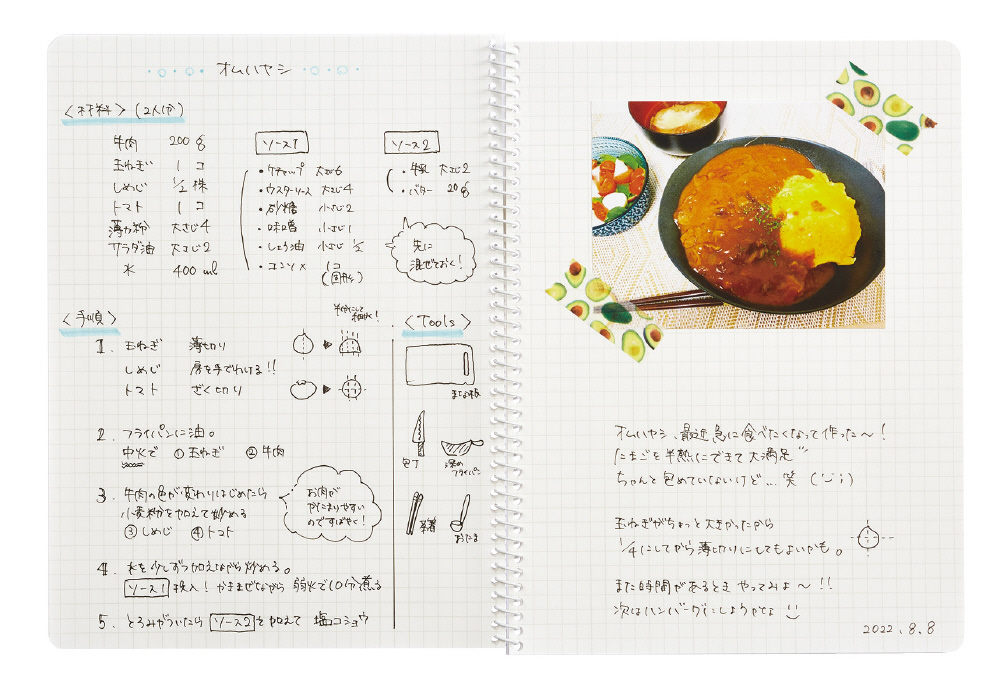 オムハヤシ
〈材料〉(2人分)
牛肉 200g
玉ねぎ 1コ
しめじ 1/2株
トマト 1コ
薄力粉 大さじ4
サラダ油 大さじ2
水 400ml
ソース1
・ケチャップ 大さじ6
・ウスターソース 大さじ4
・砂糖 小さじ2
・味噌 小さじ1
・しょう油 小さじ1/2
・コンソメ 1コ
(固形)
ソース2
・牛乳 大さじ2
・バター 20g
先に
混ぜておく!
〈手順〉
1. 玉ねぎ 薄切り
しめじ 房を手でわける!!
トマト ざく切り
2. フライパンに油。
中火で ①玉ねぎ ②牛肉
3. 牛肉の色が変わりはじめたら
小麦粉を加えて炒める
③しめじ ④トマト
お肉が
かたまりやすい
のですばやく!
4. 水を少しずつ加えながら炒める。
ソース1 投入! かきまぜながら 弱火で10分煮る
5. とろみがついたら ソース2 を加えて 塩コショウ
〈Tools〉
まな板
包丁
深め
フライパン
菜箸
おたま
オムハヤシ、最近急に食べたくなって作った〜!
たまごを半熟にできて大満足
ちゃんと包めていないけど…笑
玉ねぎがちょっと大きかったから
1/4にしてから薄切りにしてもよいかも。
また時間があるとき やってみよ〜!!
次はハンバーグにしようかな
2022.8.8